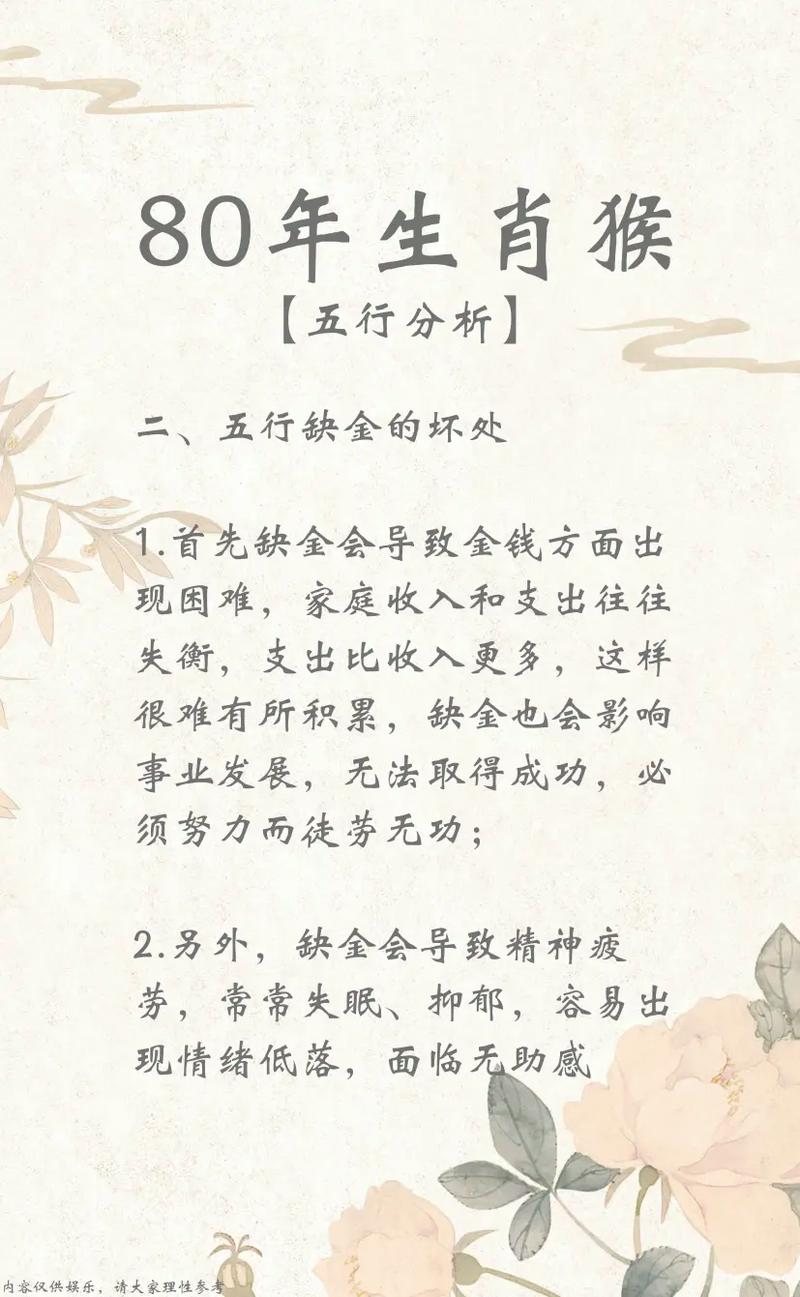 80年生肖猴
【五行分析】
二、五行缺金的坏处
1.首先缺金会导致金钱方面出
现困难，家庭收入和支出往往
失衡，支出比收入更多，这样
很难有所积累，缺金也会影响
事业发展，无法取得成功，必
须努力而徒劳无功；
2.另外，缺金会导致精神疲
劳，常常失眠、抑郁，容易出
现情绪低落，面临无助感
内容仅供娱乐，请大家理性参考